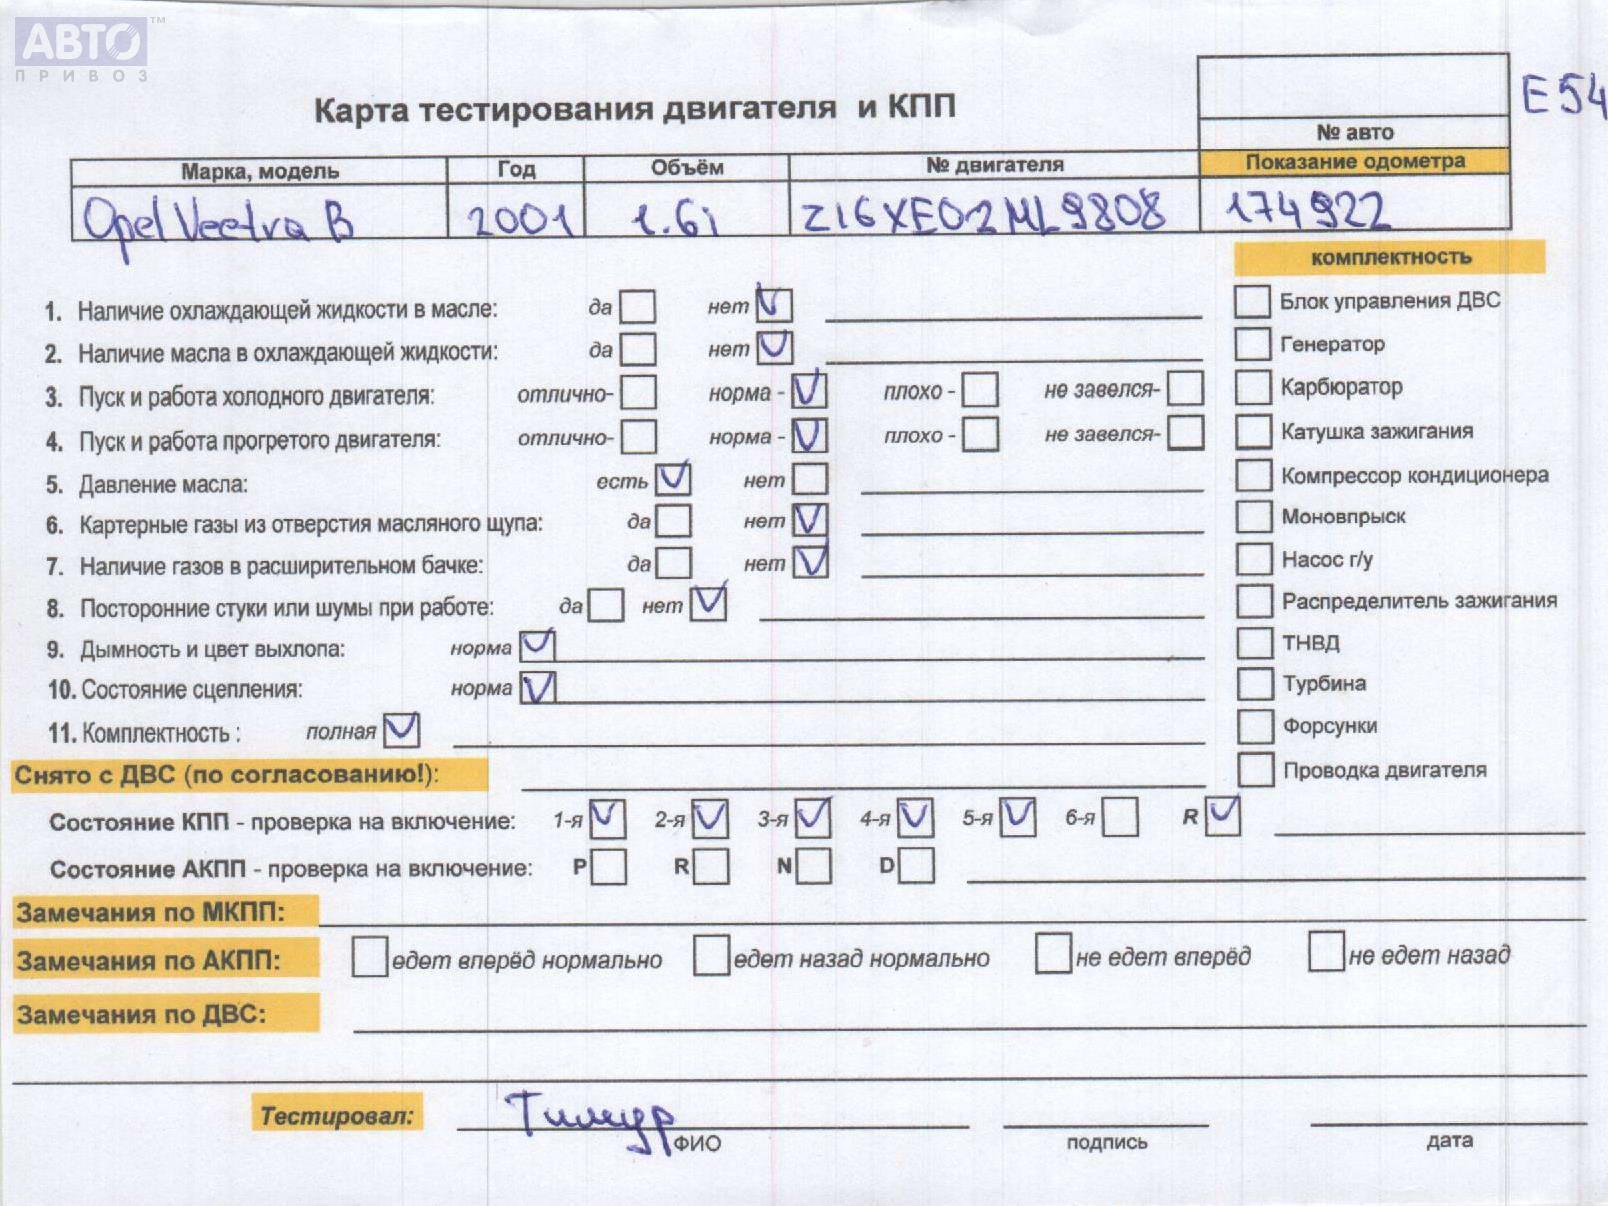 АВТО™
ПРИВОЗ
E54
Карта тестирования двигателя и КПП
№ авто
Марка, модель Год Объём № двигателя Показание одометра
Opel Vectra B 2001 1.6i Z16XE02ML9808 174922
комплектность
1. Наличие охлаждающей жидкости в масле: да нет
Блок управления ДВС
2. Наличие масла в охлаждающей жидкости: да нет
Генератор
3. Пуск и работа холодного двигателя: отлично- норма - плохо - не завелся-
Карбюратор
4. Пуск и работа прогретого двигателя: отлично- норма - плохо - не завелся-
Катушка зажигания
5. Давление масла: есть нет
Компрессор кондиционера
6. Картерные газы из отверстия масляного щупа: да нет
Моновпрыск
7. Наличие газов в расширительном бачке: да нет
Насос г/у
8. Посторонние стуки или шумы при работе: да нет
Распределитель зажигания
9. Дымность и цвет выхлопа: норма
ТНВД
10. Состояние сцепления: норма
Турбина
11. Комплектность : полная
Форсунки
Снято с ДВС (по согласованию!):
Проводка двигателя
Состояние КПП - проверка на включение: 1-я 2-я 3-я 4-я 5-я 6-я R
Состояние АКПП - проверка на включение: P R N D
Замечания по МКПП:
Замечания по АКПП: едет вперёд нормально едет назад нормально не едет вперёд не едет назад
Замечания по ДВС:
Тестировал: Тимур
ФИО подпись дата